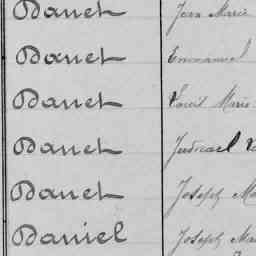 Danet Jean Marie
Danet Emmanuel
Danet Louis Marie
Danet Judicael
Danet Joseph Ma
Daniel Joseph Mar